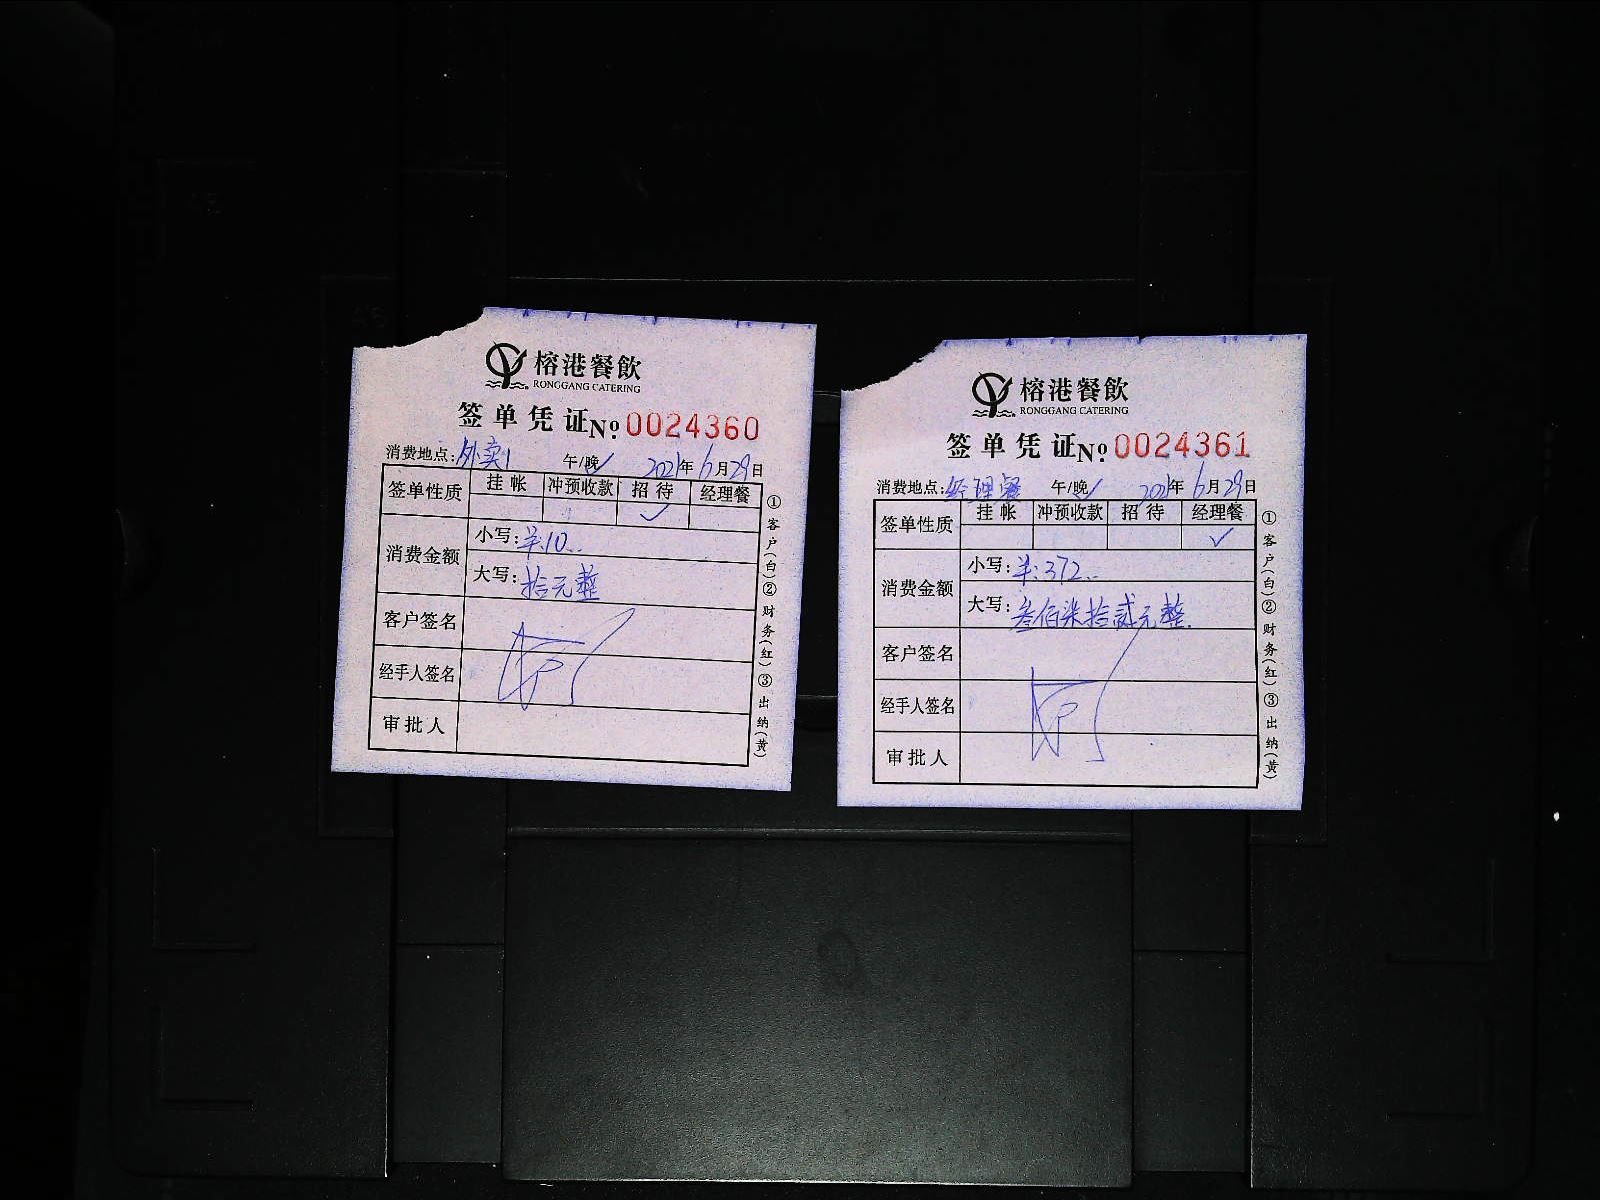 榕港餐飲
RONGGANG CATERING
签单凭证№0024360
消费地点:外卖1 午/晚✓ 2021年6月29日
签单性质 挂帐 冲预收款 招待 经理餐
✓
消费金额 小写:¥:10..
大写:拾元整
客户签名
经手人签名
审批人
①客户(白)②财务(红)③出纳(黄)
榕港餐飲
RONGGANG CATERING
签单凭证№0024361
消费地点:经理餐 午/晚✓ 2021年6月29日
签单性质 挂帐 冲预收款 招待 经理餐
✓
消费金额 小写:¥:372..
大写:叁佰柒拾贰元整.
客户签名
经手人签名
审批人
①客户(白)②财务(红)③出纳(黄)